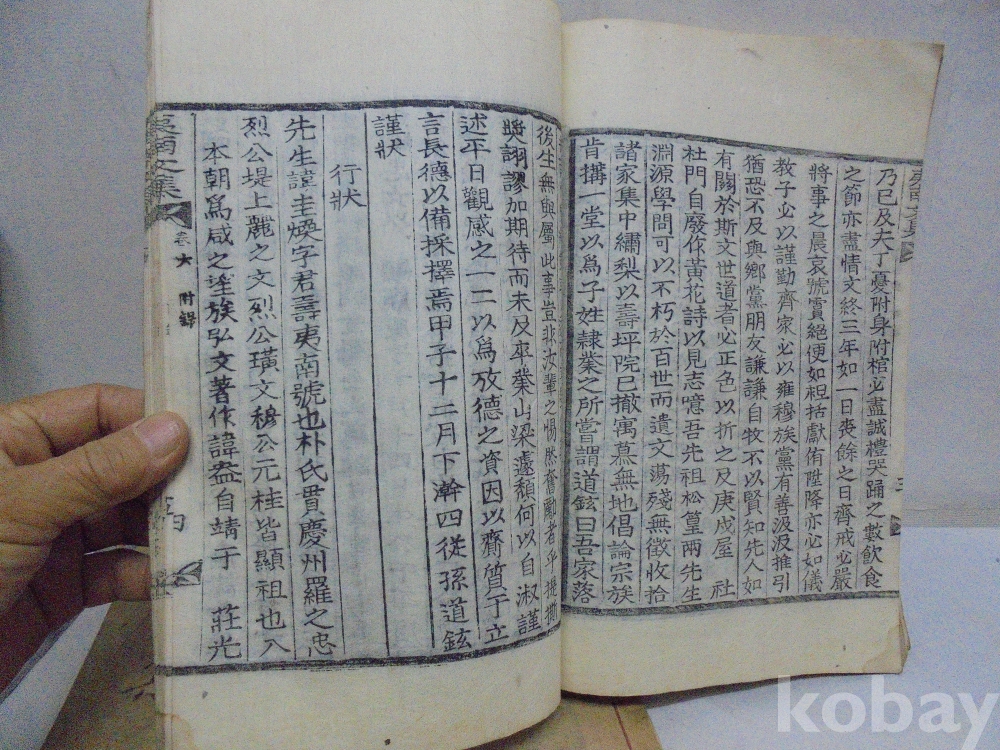 乃已及夫丁憂附身附棺必盡誠禮哭踊之數飮食
之節亦盡情文終三年如一日喪餘之日齊戒必嚴
將事之晨哀號賓絕便如袒括獻侑陞降亦必如儀
教子必以謹勤齊家必以雍穆族黨有善汲汲推引
猶恐不及與鄉黨朋友謙謙自牧不以賢知先人如
有關於斯文世道者必正色以折之及庚戌屋 社
杜門自廢作黃花詩以見志噫吾先祖松篁兩先生
淵源學問可以不朽於百世而遺文蕩殘無徵收拾
諸家集中繡梨以壽坪院已撤寓慕無地倡論宗族
肯搆一堂以爲子姓隷業之所嘗謂道鉉曰吾家落
後生無與屬此事豈非汝輩之惕然奮勵者乎提撕
奬詡謬加期待而未及卒業山梁遽頹何以自淑謹
述平日觀感之一二以爲攷德之資因以齊質于立
言長德以備採擇焉甲子十二月下澣四從孫道鉉
謹狀
行狀
先生諱圭煥字君壽夷南號也朴氏貫慶州羅之忠
烈公堤上麗之文烈公璜文穆公元桂皆顯祖也入
本朝爲咸之望族弘文著作諱盎自靖于 莊光
夷南文集
卷六
附錄
kobay